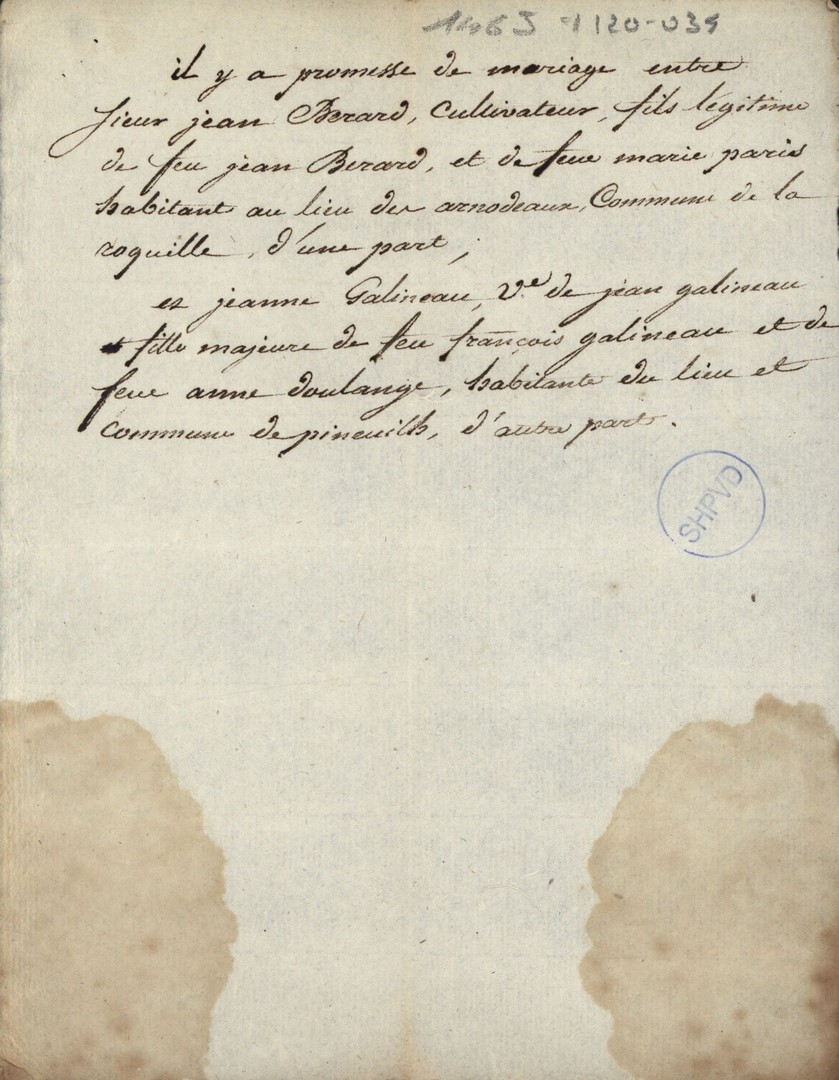 146J 1120-039
il y a promesse de mariage entre
sieur jean Berard, Cultivateur, fils légitime
de feu jean Berard, et de feue marie paris
habitant au lieu des arnodeaux, Commune de la
roquille, d'une part,
et jeanne Galineau, Ve de jean galineau
fille majeure de feu françois galineau et de
feue anne doulange, habitante du lieu et
Commune de pineuilh, d'autre part.
SHPVD